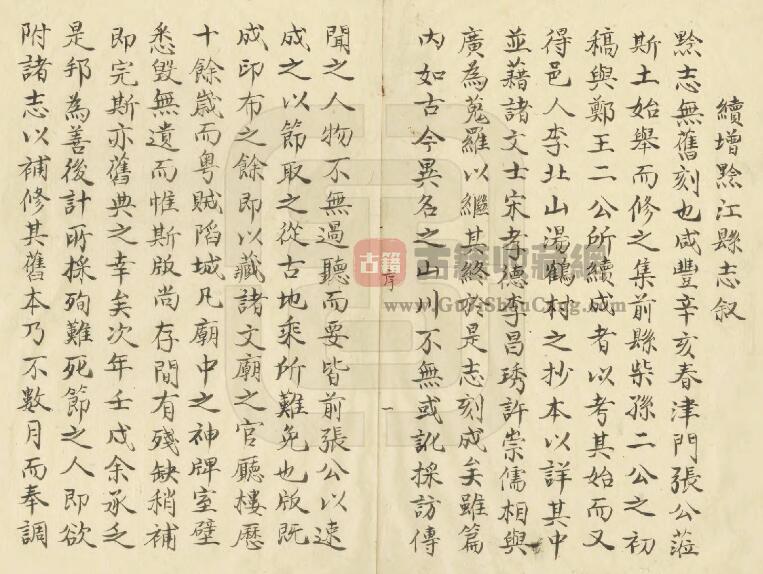 續增黔江縣志叙
黔志無舊刻也咸豐辛亥春津門張公蒞
斯土始舉而修之集前縣柴孫二公之初
稿與鄭王二公所續成者以考其始而又
得邑人李北山湯鶴村之抄本以詳其中
並藉諸文士宋孝德李昌琇許崇儒相與
廣為蒐羅以繼其終於是志刻成矣雖篇
内如古今異名之山川不無或訛採訪傳
序
一
聞之人物不無過聽而要皆前張公以速
成之以節取之從古地乘所難免也版既
成印布之餘即以藏諸文廟之官廳樓歷
十餘歲而粤賊陷城凡廟中之神牌室壁
悉毁無遺而惟斯版尚存間有殘缺稍補
即完斯亦舊典之幸矣次年壬戌余承乏
是邦為善後計所採殉難死節之人即欲
附諸志以補修其舊本乃不數月而奉調
古籍
古籍收藏網
www.GujiShouCang.com